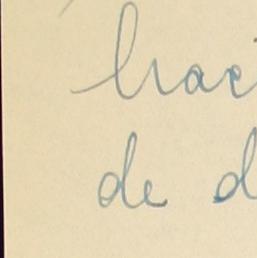 haci
de d